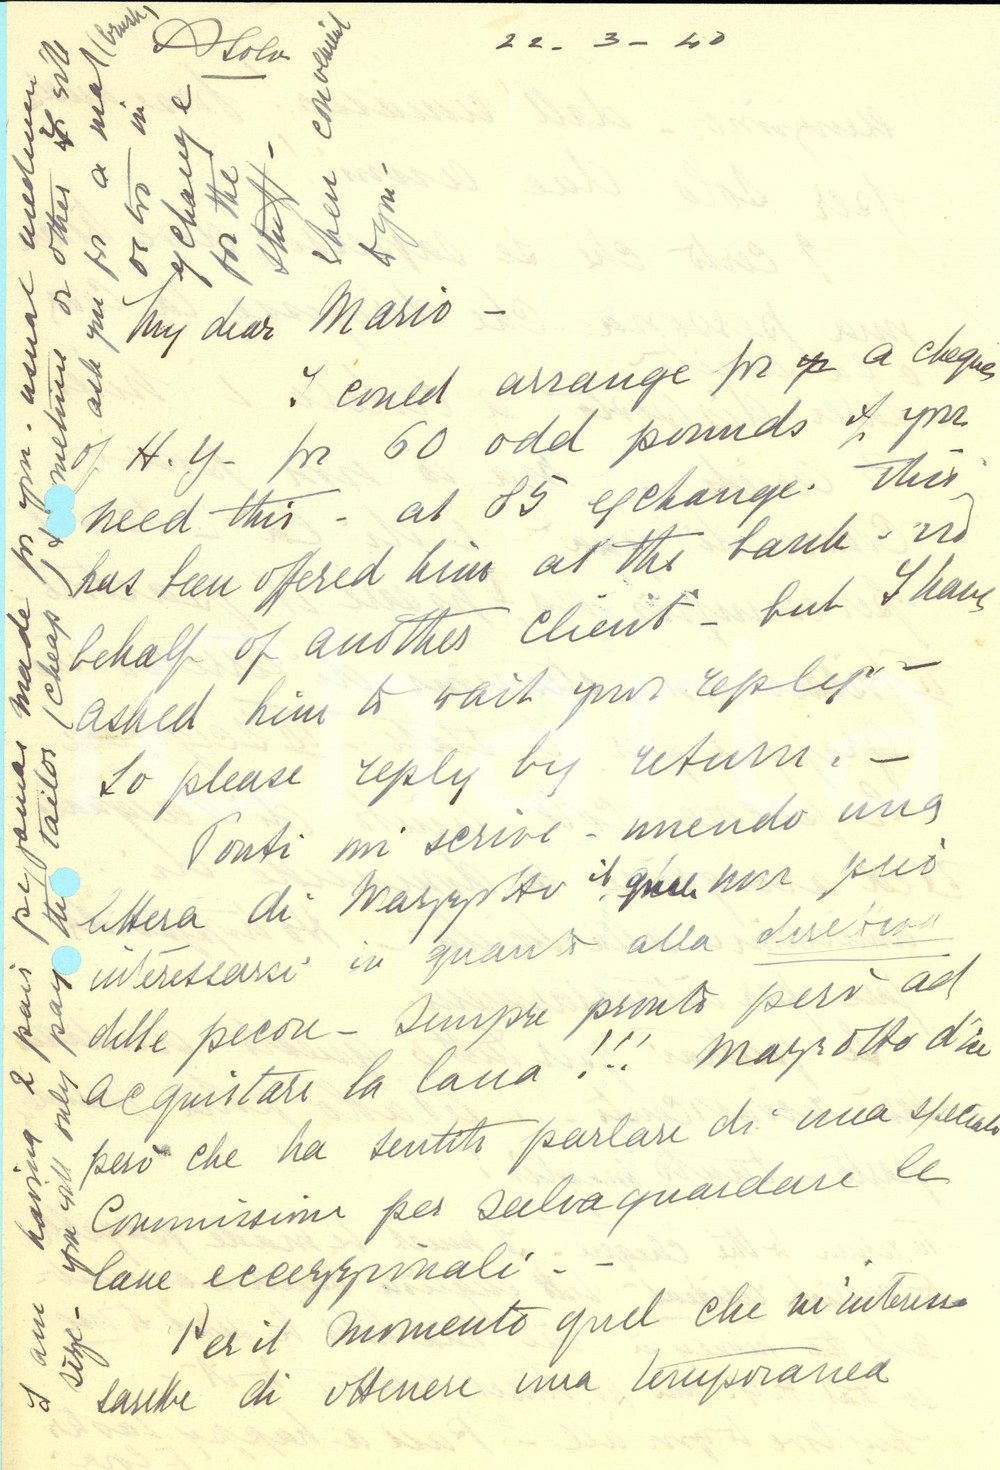 Asolo
22-3-40
My dear Mario -
I could arrange for a cheque
of H.Y. for 60 odd pounds if you
need this - at 85 exchange. This
has been offered him at the bank - on
behalf of another client - but I have
asked him to wait your reply -
So please reply by return. -
Ponti mi scrive - unendo una
lettera di Marzotto il quale non può
interessarsi in quanto alla direttiva
delle pecore - sempre pronto però ad
acquistare la lana !!! Marzotto dice
però che ha sentito parlare di una speciale
Commissione per salvaguardare le
lane eccezzionali. -
Per il momento quel che m'interes
sarebbe di ottenere una temporanea
I am having 2 pair pejamas made for you. usual medium
size - you will only pay the tailor (cheap) & sometime or other I will
ask you for a mat (brush)
or two in
exchange
for the
stuff -
when convenient
to you -